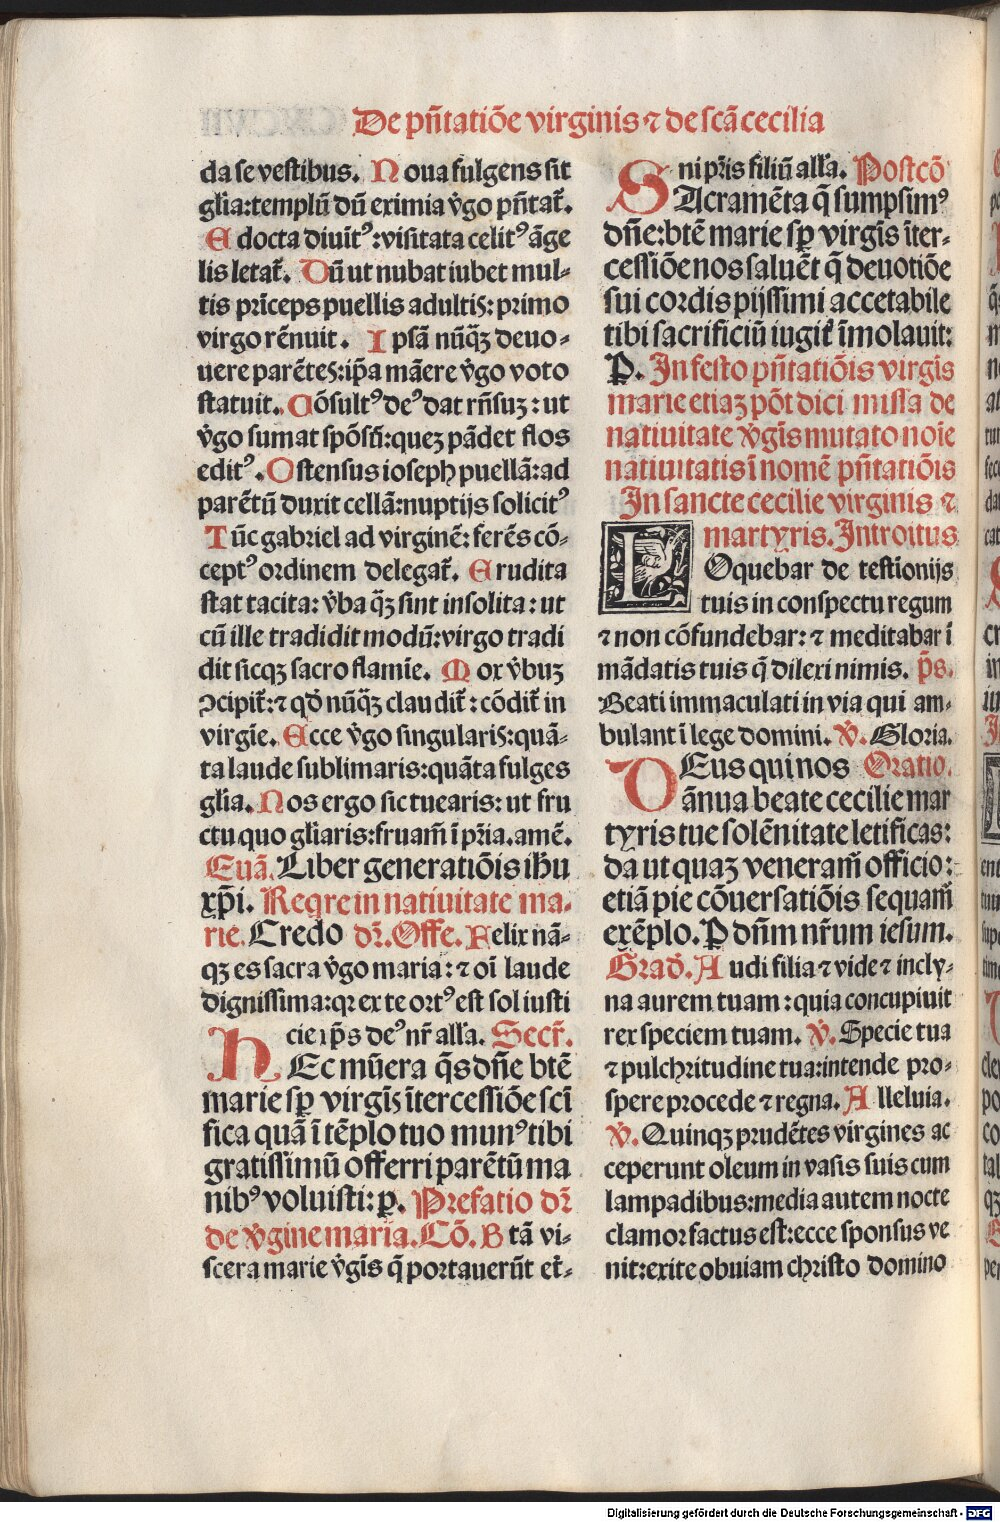 De pñtatiõe virginis ⁊ de scã cecilia
da se vestibus. Noua fulgens sit
gl̃ia: templũ dũ eximia v̾go pñtat᷑.
Edocta diuit⁹: visitata celit⁹ ãge
lis letat᷑. Dũ ut nubat iubet mul⸗
tis prĩceps puellis adultis: primo
virgo rẽnuit. Ipsã nũq̃ꝫ deuo⸗
uere parẽtes: ip̃a mãere v̾go voto
statuit. Cõsult⁹ de⁹ dat rñsuꝫ: ut
v̾go sumat spõsũ: queꝫ pãdet flos
edit⁹. Ostensus ioseph puellã: ad
parẽtũ duxit cellã: nuptijs solicit⁹
Tũc gabriel ad virginẽ: ferẽs cõ⸗
cept⁹ ordinem delegat᷑. Erudita
stat tacita: v̾ba q̃ꝫ sint insolita: ut
cũ ille tradidit modũ: virgo tradi
dit sicqꝫ sacro flamĩe. Mox v̾buꝫ
ↄcipit᷑: ⁊ qð nũq̃ꝫ claudit᷑: cõdit᷑ in
virgĩe. Ecce v̾go singularis: quã⸗
ta laude sublimaris: quãta fulges
gl̃ia. Nos ergo sic tuearis: ut fru
ctu quo gl̃iaris: fruam̃ ĩ pr̃ia. amẽ.
Euã. Liber generatiõis ih̃u
xp̃i. Reqre in natiuitate ma⸗
rie. Credo dr̃. Offe. Felix nã⸗
qꝫ es sacra v̾go maria: ⁊ oĩ laude
dignissima: qr ex te ort⁹ est sol iusti
cie ip̃s de⁹ nr̃ all̃a. Secr̃.
HEc mũera q̃s dñe btẽ
marie sꝑ virgĩs ĩtercessiõe scĩ
fica quã ĩ tẽplo tuo mun⁹ tibi
gratissimũ offerri parẽtũ ma
nib⁹ voluisti: p. Prefatio dr̃
de v̾gine maria. Cõ. Btã vi⸗
scera marie v̾gĩs q̃ portauerũt et᷑⸗
ni pr̃is filiũ all̃a. Postcõ
SAcramẽta q̃ sumpsim⁹
dñe: btẽ marie sꝑ virgĩs ĩter⸗
cessiõe nos saluẽt q̃ deuotiõe
sui cordis pijssimi accetabile
tibi sacrificiũ iugit᷑ ĩmolauit:
P. In festo pñtatiõis virgĩs
marie etiaꝫ põt dici missa de
natiuitate v̾gĩs mutato noĩe
natiuitatis ĩ nomẽ pñtatiõis
In sancte cecilie virginis ⁊
martyris. Introitus
LOquebar de testionijs
tuis in conspectu regum
⁊ non cõfundebar: ⁊ meditabar ĩ
mãdatis tuis q̃ dilexi nimis. p̃s.
Beati immaculati in via qui am⸗
bulant ĩ lege domini. ℣. Gloria.
DEus qui nos Oratio.
ãnua beate cecilie mar
tyris tue solẽnitate letificas:
da ut quaꝫ veneram̃ officio:
etiã pie cõuersatiõis sequam̃
exẽplo. P dñm nr̃um iesum.
Grad̾. Audi filia ⁊ vide ⁊ incly⸗
na aurem tuam: quia concupiuit
rex speciem tuam. ℣. Specie tua
⁊ pulchritudine tua: intende pro⸗
spere procede ⁊ regna. Alleluia.
℣. Quinqꝫ prudẽtes virgines ac
ceperunt oleum in vasis suis cum
lampadibus: media autem nocte
clamor factus est: ecce sponsus ve
nit: exite obuiam christo domino
Digitalisierung gefördert durch die Deutsche Forschungsgemeinschaft - DFG